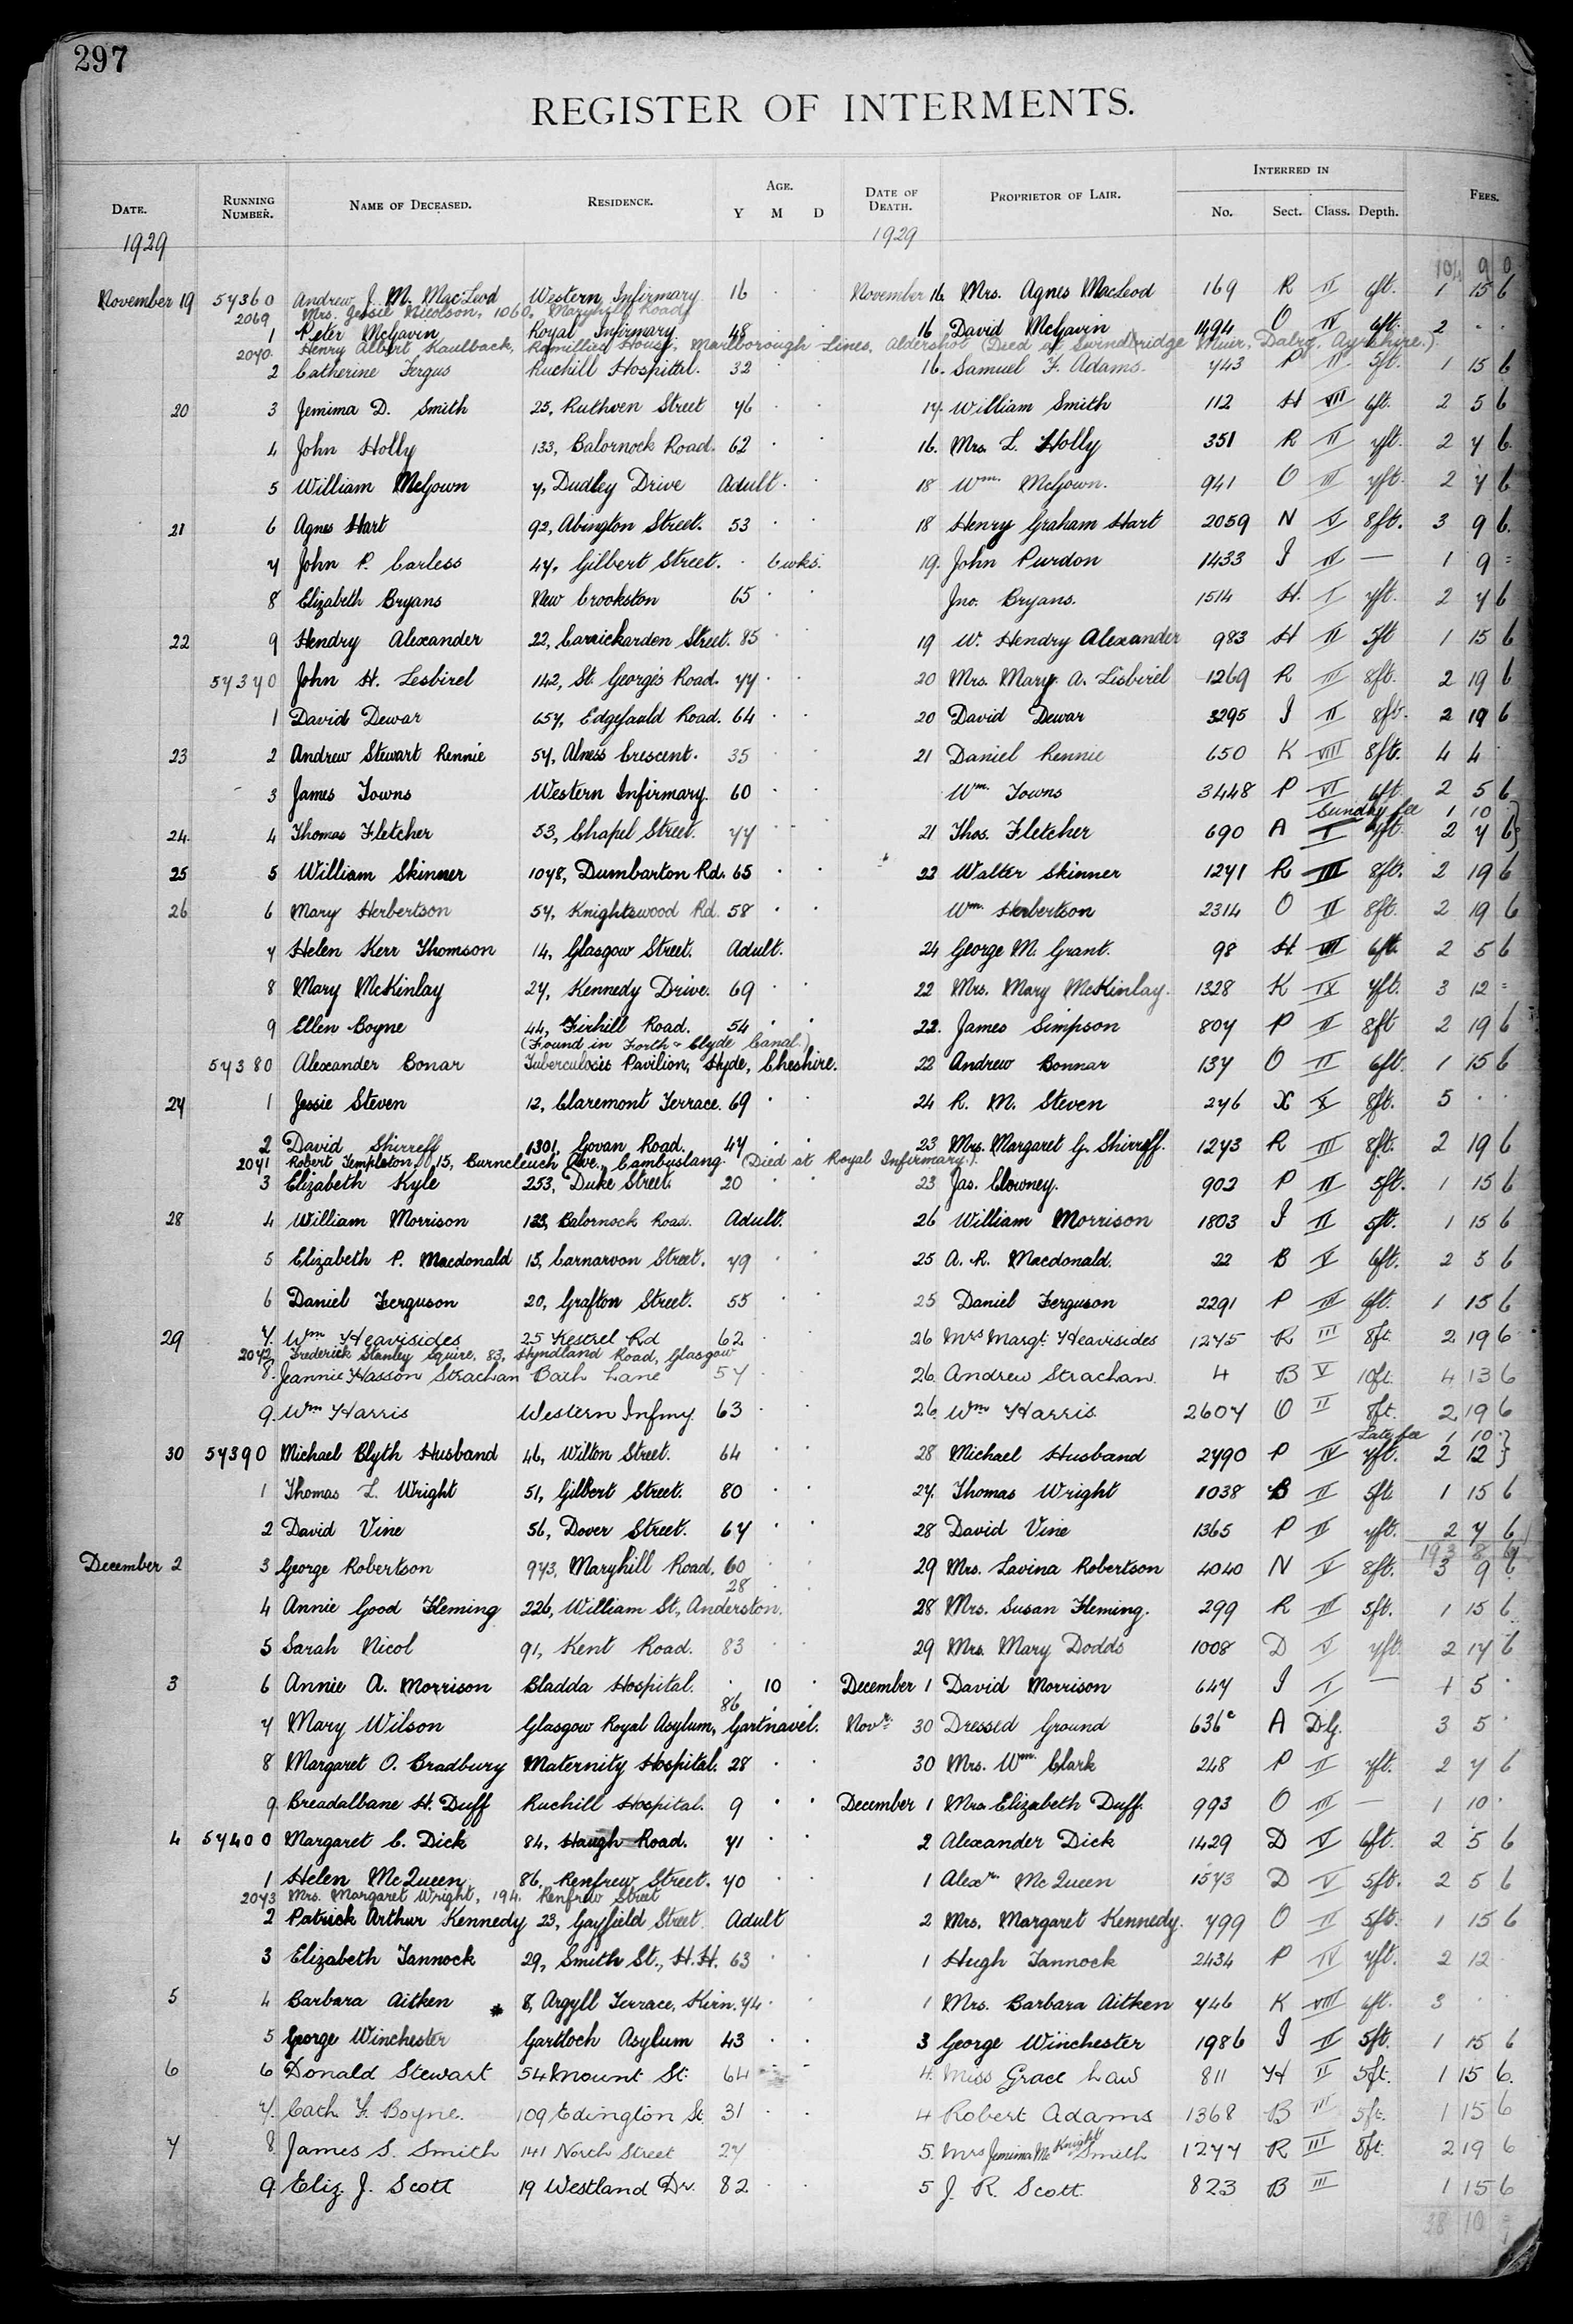 297
REGISTER OF INTERMENTS.
DATE. RUNNING NUMBER. NAME OF DECEASED. RESIDENCE. AGE. Y M D DATE OF DEATH. PROPRIETOR OF LAIR. INTERRED IN No. Sect. Class. Depth. FEES.
1929 1929
104 9 0
November 19 57360 Andrew J. M. MacLeod Western Infirmary 16 November 16 Mrs. Agnes MacLeod 169 R II 6ft. 1 15 6
2069 Mrs. Jessie Nicolson, 1060, Maryhill Road
1 Peter McGavin Royal Infirmary 48 16 David McGavin 1494 O IV 6ft. 2 . .
2070. Henry Albert Kaulback, Ramillies House, Marlborough Lines, Aldershot (Died at Swindridge Muir, Dalry, Ayrshire.)
2 Catherine Fergus Ruchill Hospital. 32 16. Samuel F. Adams. 743 P II 5ft. 1 15 6
20 3 Jemima D. Smith 25, Ruthven Street 76 17. William Smith 112 H VII 6ft. 2 5 6
4 John Holly 133, Balornock Road. 62 16. Mrs. L. Holly 351 R II 7ft. 2 7 6.
5 William McGown 7, Dudley Drive Adult. 18 Wm. McGown. 941 O III 7ft. 2 7 6
21 6 Agnes Hart 92, Abington Street. 53 18 Henry Graham Hart 2059 N V 8ft. 3 9 6.
7 John P. Carless 47, Gilbert Street. 6 wks. 19. John Purdon 1433 J II — 1 9 =
8 Elizabeth Bryans New Crookston 65 Jno. Bryans. 1514 H. I 7ft. 2 7 6
22 9 Hendry Alexander 22, Carrickarden Street. 85 19 W. Hendry Alexander 983 H II 5ft 1 15 6
57370 John H. Lesbirel 142, St. George's Road. 77 20 Mrs. Mary A. Lisbirel 1269 R III 8ft. 2 19 6
1 David Dewar 657, Edgefauld Road. 64 20 David Dewar 3295 J II 8ft. 2 19 6
23 2 Andrew Stewart Rennie 57, Alness Crescent. 35 21 Daniel Rennie 650 K VIII 8ft. 4 4 .
3 James Towns Western Infirmary. 60 Wm. Towns 3448 P VI 6ft. 2 5 6
Sunday fee 1 10 .
24. 4 Thomas Fletcher 53, Chapel Street. 77 21 Thos. Fletcher 690 A I 7ft. 2 7 6}
25 5 William Skinner 1078, Dumbarton Rd. 65 22 Walter Skinner 1271 R III 8ft. 2 19 6
26 6 Mary Herbertson 57, Knightswood Rd. 58 Wm. Herbertson 2314 O II 8ft. 2 19 6
7 Helen Kerr Thomson 14, Glasgow Street. Adult. 24 George M. Grant. 98 H. VII 6ft. 2 5 6
8 Mary McKinlay 27, Kennedy Drive. 69 22 Mrs. Mary McKinlay. 1328 K IX 7ft. 3 12 =
9 Ellen Boyne 44, Firhill Road. 54 22. James Simpson 807 P II 8ft 2 19 6
(Found in Forth & Clyde Canal.)
57380 Alexander Bonar Tuberculosis Pavilion, Hyde, Cheshire. 22 Andrew Bonnar 137 O II 6ft. 1 15 6
27 1 Jessie Steven 12, Claremont Terrace. 69 24 R. M. Steven 276 X X 8ft. 5 . .
2 David Shirreff 1301, Govan Road. 47 23 Mrs. Margaret G. Shirreff. 1273 R III 8ft. 2 19 6
2071 Robert Templeton, 15, Burncleuch Ave., Cambuslang. (Died at Royal Infirmary.)
3 Elizabeth Kyle 253, Duke Street. 20 23 Jas. Clowney. 902 P II 5ft. 1 15 6
28 4 William Morrison 133, Balornock Road. Adult. 26 William Morrison 1803 J II 5ft. 1 15 6
5 Elizabeth P. Macdonald 15, Carnarvon Street. 79 25 A. R. Macdonald. 22 B V 6ft. 2 5 6
6 Daniel Ferguson 20, Grafton Street. 55 25 Daniel Ferguson 2291 P III 6ft. 1 15 6
29 7. Wm Heavisides 25 Kestrel Rd 62 26 Mrs Margt. Heavisides 1275 R III 8ft. 2 19 6
2072 Frederick Stanley Squire, 83, Hyndland Road, Glasgow
8. Jeannie Hasson Strachan Bath Lane 57 26. Andrew Strachan. 4 B V 10ft. 4 13 6
9. Wm Harris Western Infmy. 63 26. Wm Harris 2607 O II 8ft. 2 19 6
Late fee 1 10 .}
30 57390 Michael Blyth Husband 46, Wilton Street. 64 28 Michael Husband 2790 P IV 7ft. 2 12 }
1 Thomas L. Wright 51, Gilbert Street. 80 27. Thomas Wright 1038 B II 5ft 1 15 6
2 David Vine 56, Dover Street. 67 28 David Vine 1365 P II 7ft. 2 7 6
193 8 9
December 2 3 George Robertson 973, Maryhill Road. 60 29 Mrs. Lavina Robertson 4040 N V 8ft. 3 9 6
28
4 Annie Good Fleming 226, William St., Anderston. 28 Mrs. Susan Fleming. 299 R III 5ft. 1 15 6
5 Sarah Nicol 91, Kent Road. 83 29 Mrs. Mary Dodds 1008 D V 7ft. 2 17 6
3 6 Annie A. Morrison Bladda Hospital. 10 December 1 David Morrison 647 J I — 1 5 .
86
7 Mary Wilson Glasgow Royal Asylum, Gartnavel. Novr. 30 Dressed Ground 636c A D.G. 3 5 .
8 Margaret O. Bradbury Maternity Hospital. 28 30 Mrs. Wm. Clark 248 P II 7ft. 2 7 6
9. Breadalbane H. Duff Ruchill Hospital. 9 December 1 Mrs. Elizabeth Duff. 993 O III — 1 10 .
4 57400 Margaret C. Dick 84, Haugh Road. 71 2 Alexander Dick 1429 D V 6ft. 2 5 6
1 Helen McQueen 86, Renfrew Street. 70 1 Alexr. McQueen 1573 D V 5ft. 2 5 6
2073 Mrs. Margaret Wright, 194, Renfrew Street
2 Patrick Arthur Kennedy 23, Gayfield Street. Adult 2 Mrs. Margaret Kennedy. 799 O II 5ft. 1 15 6
3 Elizabeth Tannock 29, Smith St., H.H. 63 1 Hugh Tannock 2434 P IV 7ft. 2 12 .
5 4 Barbara Aitken 8, Argyll Terrace, Kirn. 74 1 Mrs. Barbara Aitken 746 K VIII 6ft. 3 . .
5 George Winchester Gartloch Asylum 43 3 George Winchester 1986 J II 5ft. 1 15 6
6 6 Donald Stewart 54 Mount St. 64 4. Miss Grace Law 811 H II 5ft. 1 15 6.
7. Cath. F. Boyne. 109 Edington St. 31 4 Robert Adams 1368 B III 5ft. 1 15 6
7 8 James S. Smith 141 North Street 27 5. Mrs Jemima McKnight Smith 1277 R III 8ft. 2 19 6
9. Eliz. J. Scott 19 Westland Dr. 82 5 J. R. Scott. 823 B III 1 15 6
38 10